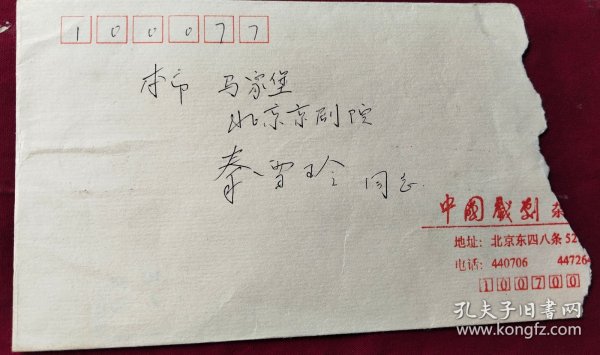 100077
本市 马家堡
北京京剧院
秦雪玲 同志
中國戲劇杂
地址: 北京东四八条52
电话: 440706 44726
100700
孔夫子旧书网
www.kongfz.com